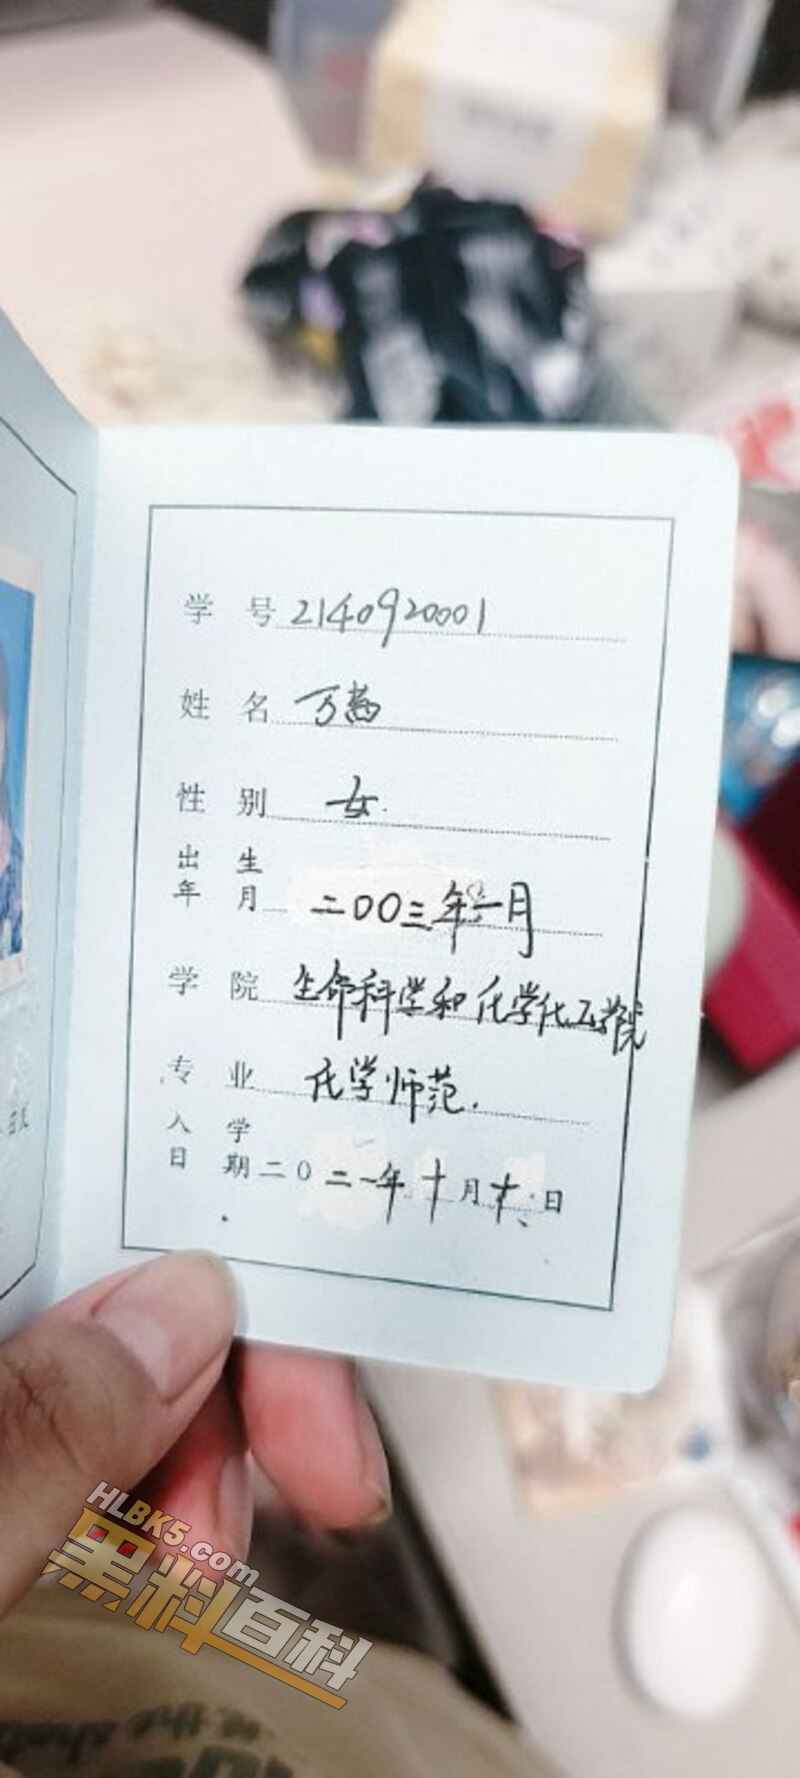 学 号 2140920001
姓 名
性 别 女
出 生
年 月 二00三年一月
学 院 生命科学和化学化工学院
专 业 化学师范
入 学
日 期 二0二一年十月十日
HLBK5.com
黑料百科